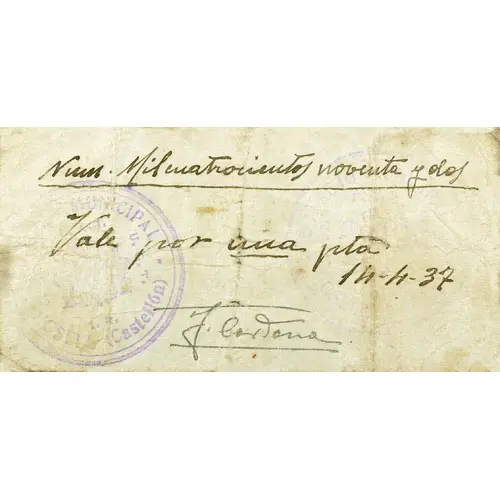 Num. Milcuatrocientos noventa y dos
Vale por una pta
14-4-37
J. Cardona
MUNICIPAL
U. G. T.
(Castellón)